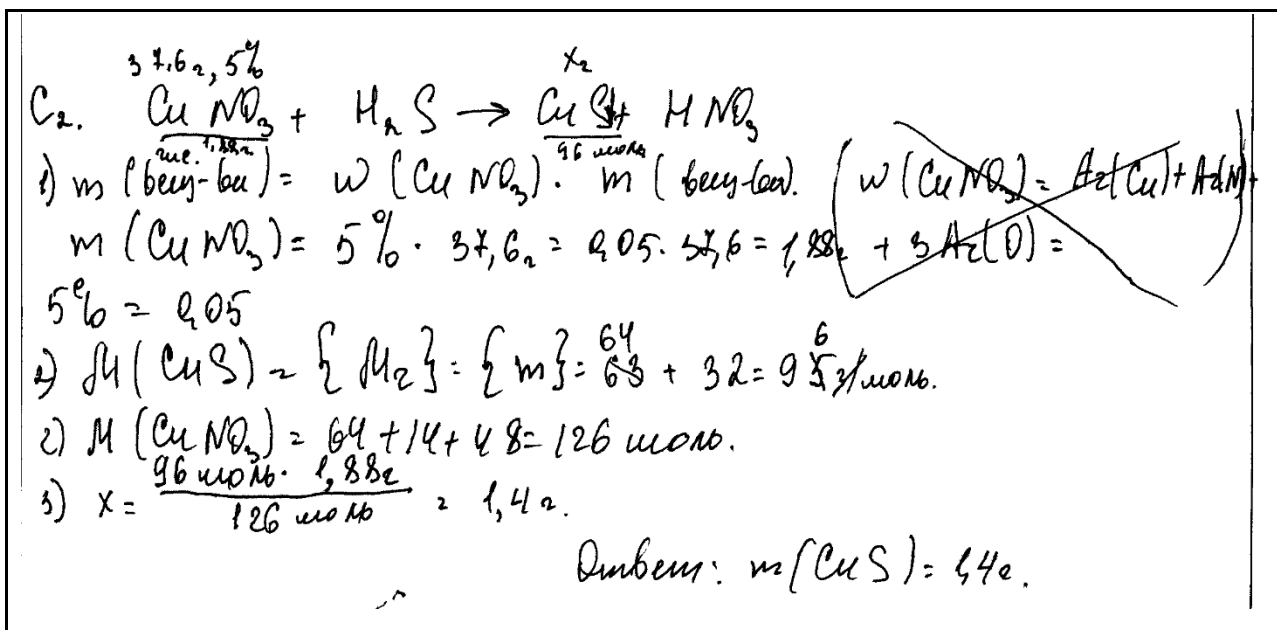 37,6 г, 5% x г
C₂. CuNO₃ + H₂S → CuS↓ + HNO₃
1,88 г 96 моль
1) m (вещ-ва) = w (CuNO₃) · m (вещ-ва). (w (CuNO₃) = Ar(Cu) + Ar(N) +
m (CuNO₃) = 5% · 37,6 г = 0,05 · 37,6 = 1,88 г + 3 Ar(O) =
5% = 0,05
2) M (CuS) = {Mr} = {m} = 64 + 32 = 96 г/моль.
2) M (CuNO₃) = 64 + 14 + 48 = 126 моль.
3) x = 96 моль · 1,88 г / 126 моль = 1,4 г.
Ответ: m (CuS) = 1,4 г.